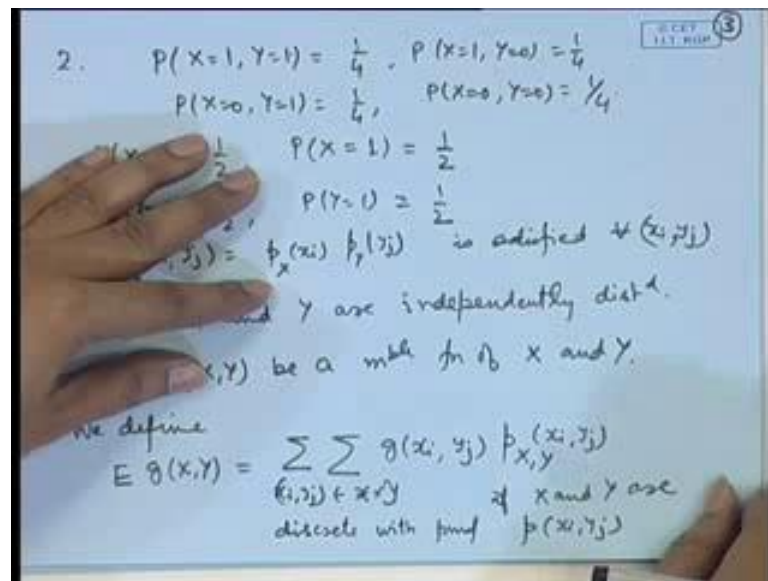 © CET
I.I.T. KGP
3
2. P(X=1, Y=1) = 1/4, P(X=1, Y=0) = 1/4
P(X=0, Y=1) = 1/4, P(X=0, Y=0) = 1/4.
1/2 P(X = 1) = 1/2
2, P(Y=1) = 1/2
, yj) = pX(xi) pY(yj) is satisfied ∀ (xi, yj)
and Y are independently distd.
X,Y) be a mble fn of X and Y.
We define
E g(X,Y) = Σ Σ g(xi, yj) pX,Y(xi, yj)
(xi,yj) ∈ X×Y if X and Y are
discrete with pmf p(xi, yj)